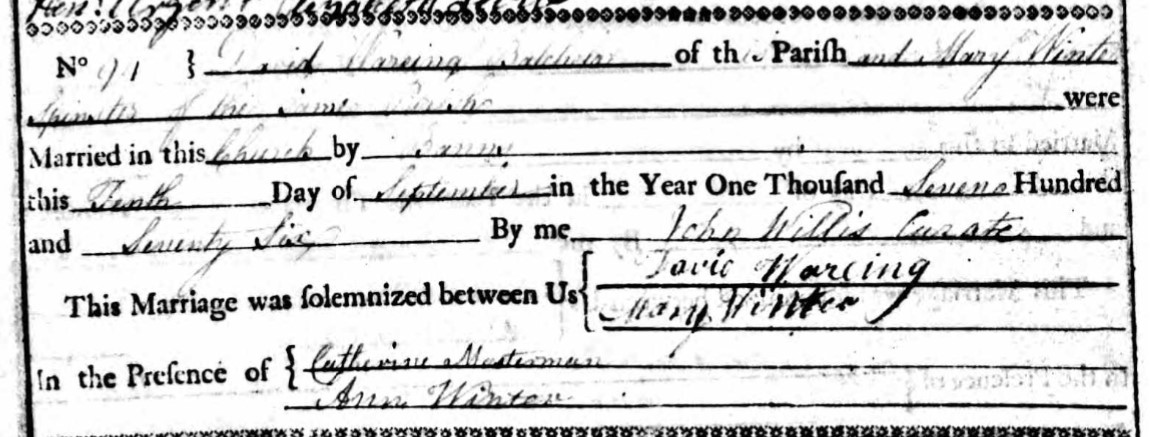 Nº 91 } David Wareing Batchelor of the Pariſh and Mary Winter
Spinster of the same Parish were
Married in this Church by Banns
this Tenth Day of September in the Year One Thouſand Seven Hundred
and Seventy Six By me John Willis Curate
This Marriage was ſolemnized between Us { David Wareing
Mary Winter
In the Preſence of { Catherine Masterman
Ann Winter